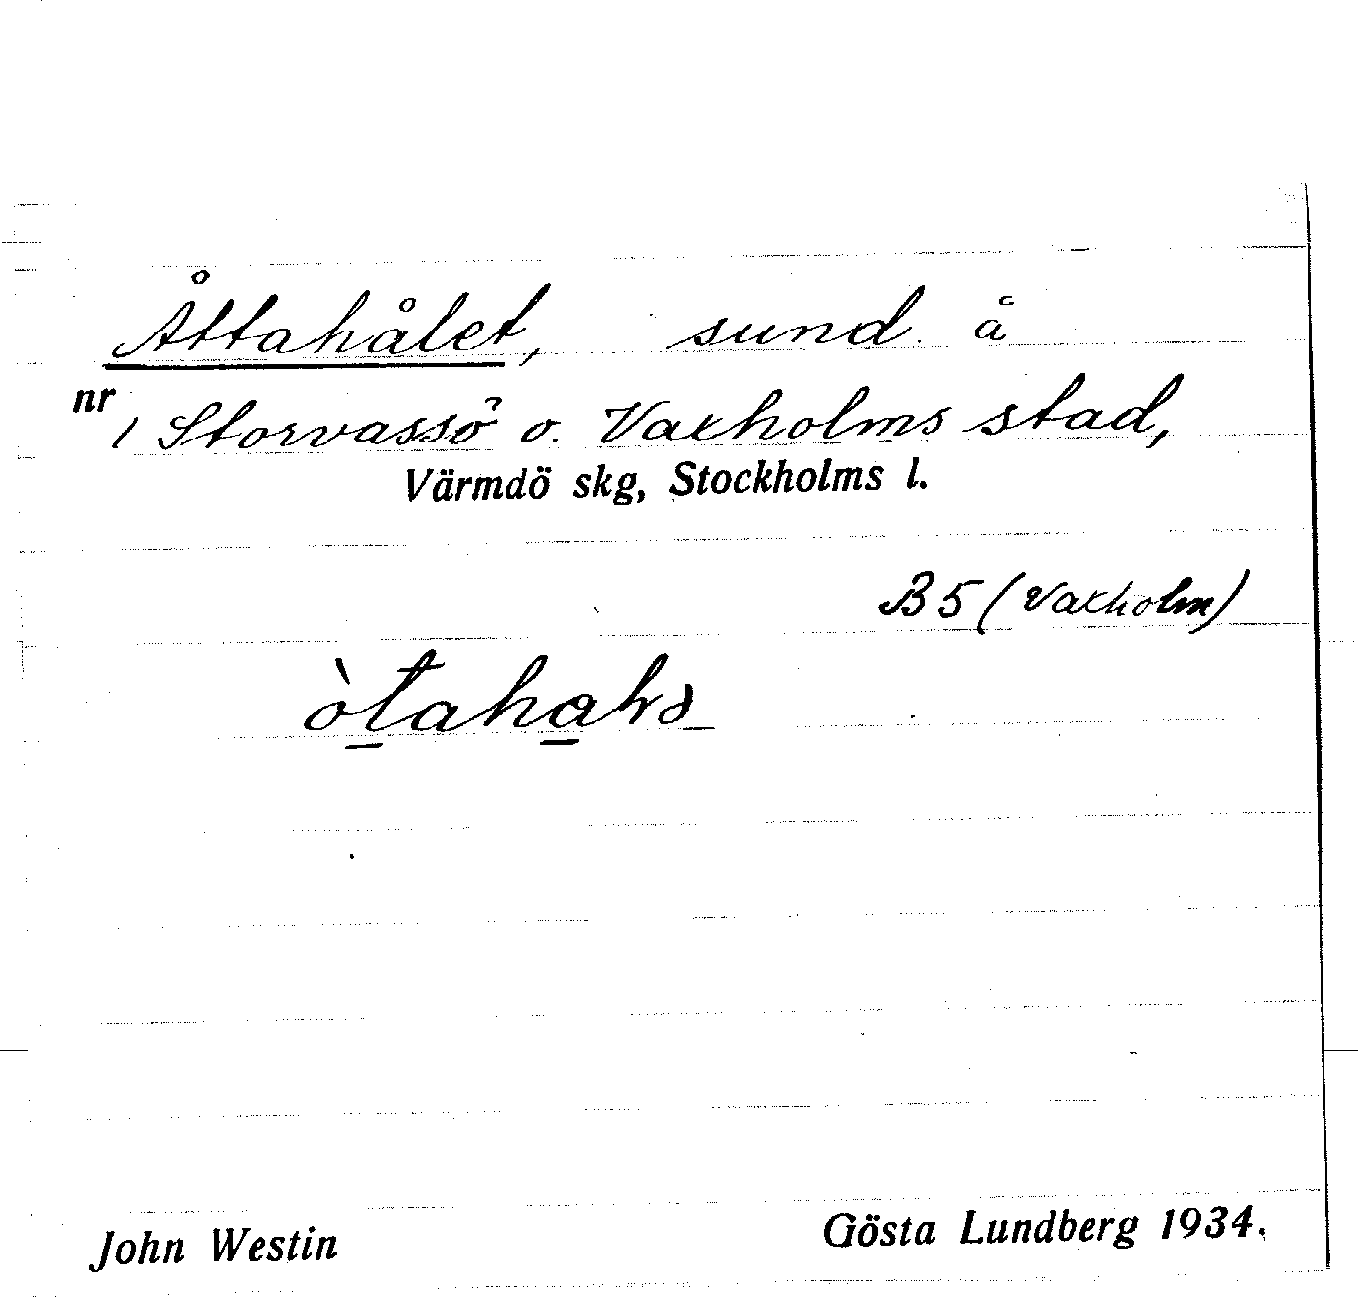 Åttahålet, sund å
nr 1 Storvassö o. Vaxholms stad,
Värmdö skg, Stockholms l.
B5 (Vaxholm)
John Westin
Gösta Lundberg 1934.